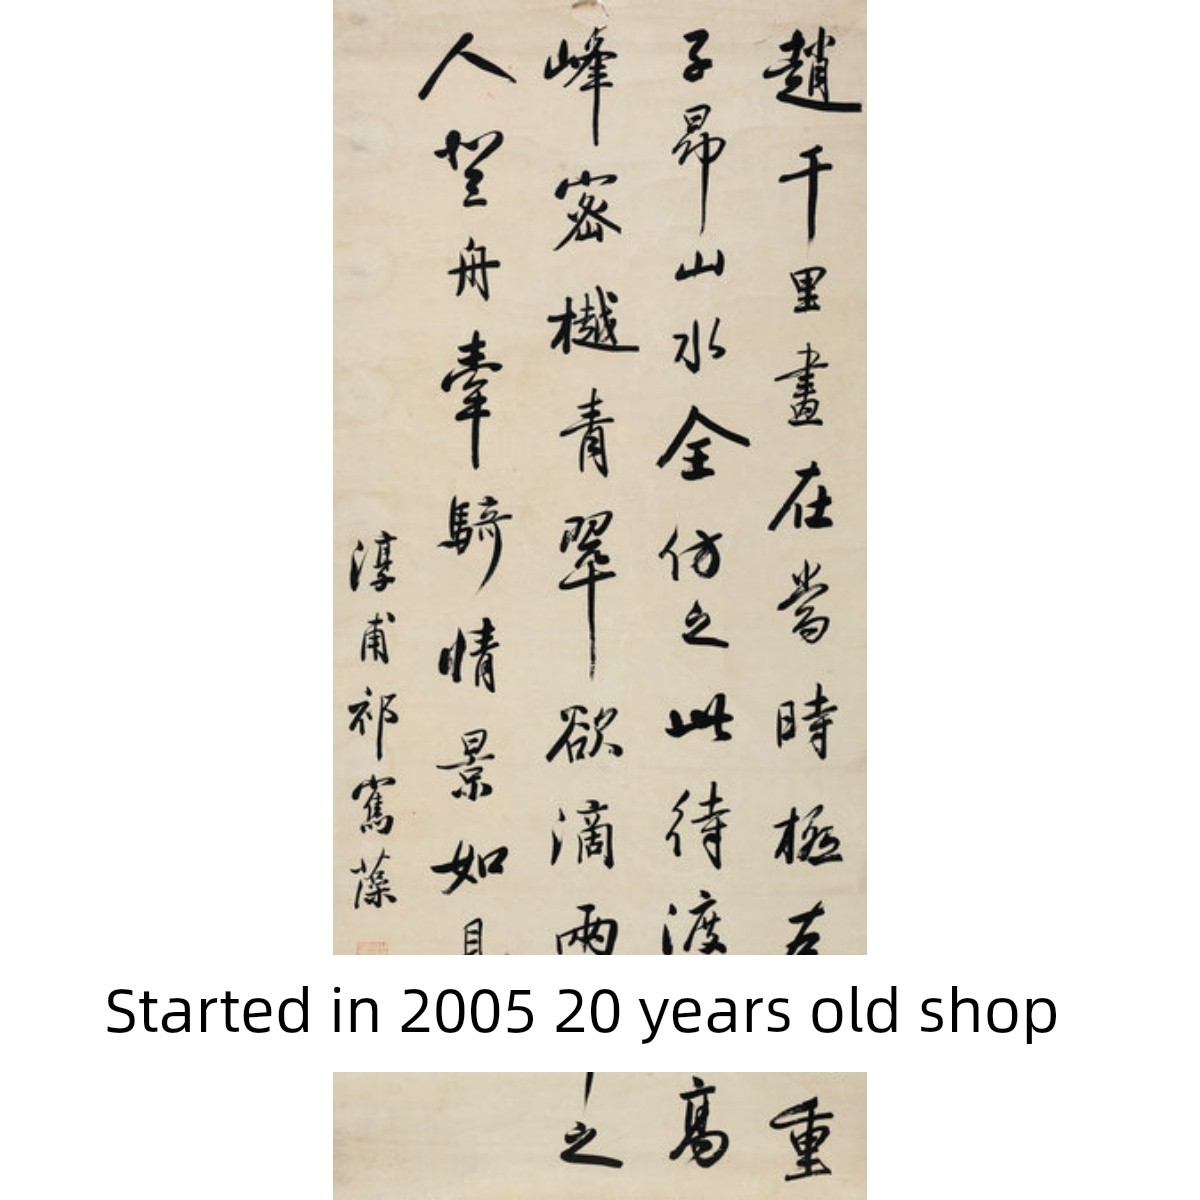 趙千里畫在當時極右重
子昂山水全仿之此待渡高
峰密樾青翠欲滴兩之
人登舟牽騎情景如見
淳甫祁寯藻
Started in 2005 20 years old shop